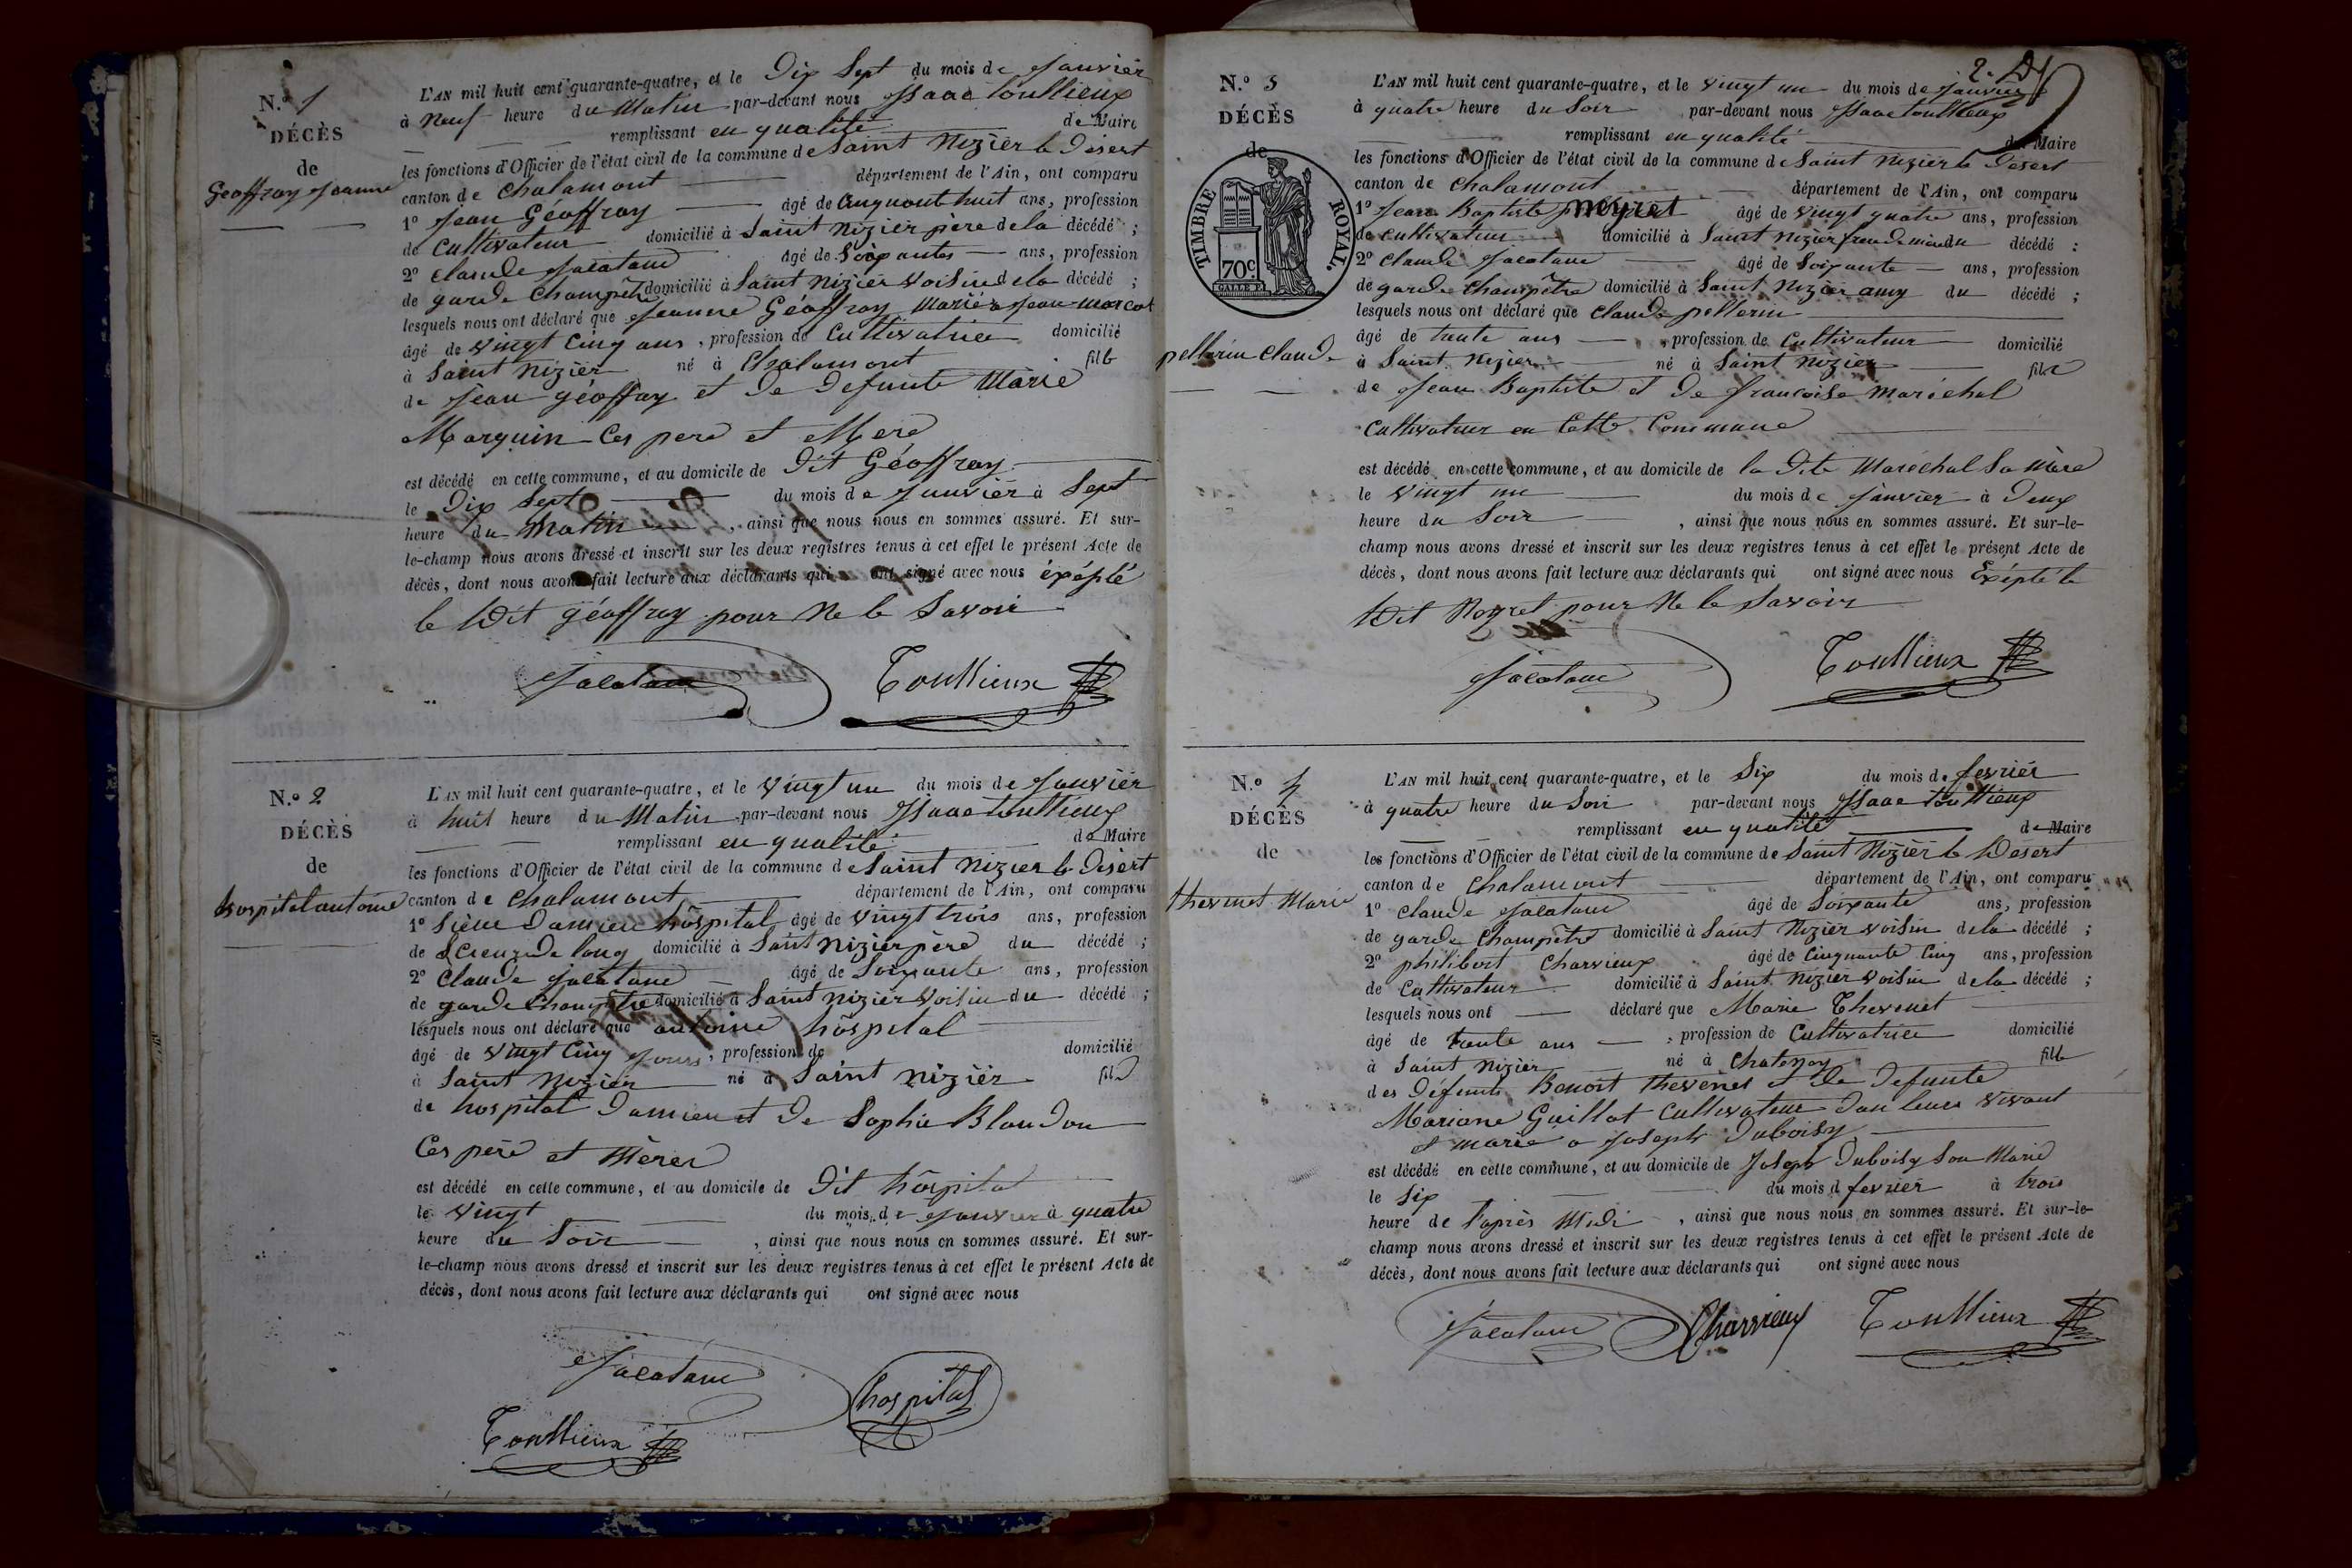 N.° 1
DÉCÈS
de
Geoffray Jeanne
L'AN mil huit cent quarante-quatre, et le Dix Sept du mois de Janvier
à Neuf heure du Matin par-devant nous Isaac Toullieux
remplissant en qualité de Maire
les fonctions d'Officier de l'état civil de la commune de Saint Nizier le Desert
canton de Chalamont département de l'Ain, ont comparu
1° Jean Géoffray âgé de Cinquant huit ans, profession
de Cultivateur domicilié à Saint Nizier père de la décédé ;
2° Claude Jacatane âgé de Soixantes ans, profession
de garde Champêtre domicilié à Saint Nizier Voisin de la décédé ;
lesquels nous ont déclaré que Jeanne Géoffray Mariée a Jean
âgé de Vingt Cinq ans, profession de Cultivatrice domicilié
à Saint Nizier né à Chalamont fille
de Jean géoffray et de Defunte Marie
Marguin Ces pere et Mere
est décédé en cette commune, et au domicile de Dit Géoffray
le Dix Sept du mois de Janvier à Sept
heure du Matin, ainsi que nous nous en sommes assuré. Et sur-
le-champ nous avons dressé et inscrit sur les deux registres tenus à cet effet le présent Acte de
décès, dont nous avons fait lecture aux déclarants qui ont signé avec nous éxépté
le Dit géoffray pour Ne le Savoir
Jacatane Toullieux
N.° 2
DÉCÈS
de
hospital antoine
L'AN mil huit cent quarante-quatre, et le Vingt un du mois de Janvier
à huit heure du Matin par-devant nous Isaac Toullieux
remplissant en qualité de Maire
les fonctions d'Officier de l'état civil de la commune de Saint Nizier le Désert
canton de Chalamont département de l'Ain, ont comparu
1° Sieur Damien hôspital âgé de Vingt trois ans, profession
de Scieur de long domicilié à Saint Nizier père du décédé ;
2° Claude Jacatane âgé de Soixante ans, profession
de garde Champêtre domicilié à Saint Nizier Voisin du décédé ;
lesquels nous ont déclaré que antoine hôspital
âgé de Vingt Cinq Jours, profession de domicilié
à Saint Nizier né à Saint Nizier fils
de hospital Damien et de Sophie Blandon
Ces père et Mères
est décédé en cette commune, et au domicile de Dit hôspital
le Vingt du mois de Janvier à quatre
heure du Soir, ainsi que nous nous en sommes assuré. Et sur-
le-champ nous avons dressé et inscrit sur les deux registres tenus à cet effet le présent Acte de
décès, dont nous avons fait lecture aux déclarants qui ont signé avec nous
Jacatane hospital
Toullieux
N.° 3
DÉCÈS
de
TIMBRE ROYAL.
70c.
pellerin Claude
L'AN mil huit cent quarante-quatre, et le Vingt un du mois de Janvier
à quatre heure du Soir par-devant nous Isaac Toullieux
remplissant en qualité de Maire
les fonctions d'Officier de l'état civil de la commune de Saint Nizier le Desert
canton de Chalamont département de l'Ain, ont comparu
1° Jean Baptiste Noyret âgé de Vingt quatre ans, profession
de cultivateur domicilié à Saint Nizier du décédé ;
2° Claude Jacatane âgé de Soixante ans, profession
de garde Champêtre domicilié à Saint Nizier amy du décédé ;
lesquels nous ont déclaré que Claude pellerin
âgé de trente ans, profession de Cultivateur domicilié
à Saint Nizier né à Saint Nizier fils
de Jean Baptiste et de francoise Maréchal
Cultivateur en Cette Commune
est décédé en cette commune, et au domicile de la dite Maréchal Sa Mère
le Vingt un du mois de Janvier à Deux
heure du Soir, ainsi que nous nous en sommes assuré. Et sur-le-
champ nous avons dressé et inscrit sur les deux registres tenus à cet effet le présent Acte de
décès, dont nous avons fait lecture aux déclarants qui ont signé avec nous Éxépté le
Dit Noyret pour Ne le Savoir
Jacatane Toullieux
N.° 4
DÉCÈS
de
thevenet Marie
L'AN mil huit cent quarante-quatre, et le Six du mois de fevrier
à quatre heure du Soir par-devant nous Isaac Toullieux
remplissant en qualité de Maire
les fonctions d'Officier de l'état civil de la commune de Saint Nizier le Desert
canton de Chalamont département de l'Ain, ont comparu
1° Claude Jacatane âgé de Soixante ans, profession
de garde Champêtre domicilié à Saint Nizier Voisin de la décédé ;
2° philibert Charvieux âgé de Cinquante Cinq ans, profession
de Cultivateur domicilié à Saint Nizier Voisin de la décédé ;
lesquels nous ont déclaré que Marie Thevenet
âgé de trente ans, profession de Cultivatrice domicilié
à Saint Nizier né à Chatenay fille
des Défunts Benoit thevenet et de Defunte
Mariane Guillot Cultivateur Dan leurs Vivant
et mariée a Joseph Duboisy
est décédé en cette commune, et au domicile de Joseph Duboisy Son Marie
le Six du mois d fevrier à trois
heure de l'après Midi, ainsi que nous nous en sommes assuré. Et sur-le-
champ nous avons dressé et inscrit sur les deux registres tenus à cet effet le présent Acte de
décès, dont nous avons fait lecture aux déclarants qui ont signé avec nous
Jacatane Charvieux Toullieux